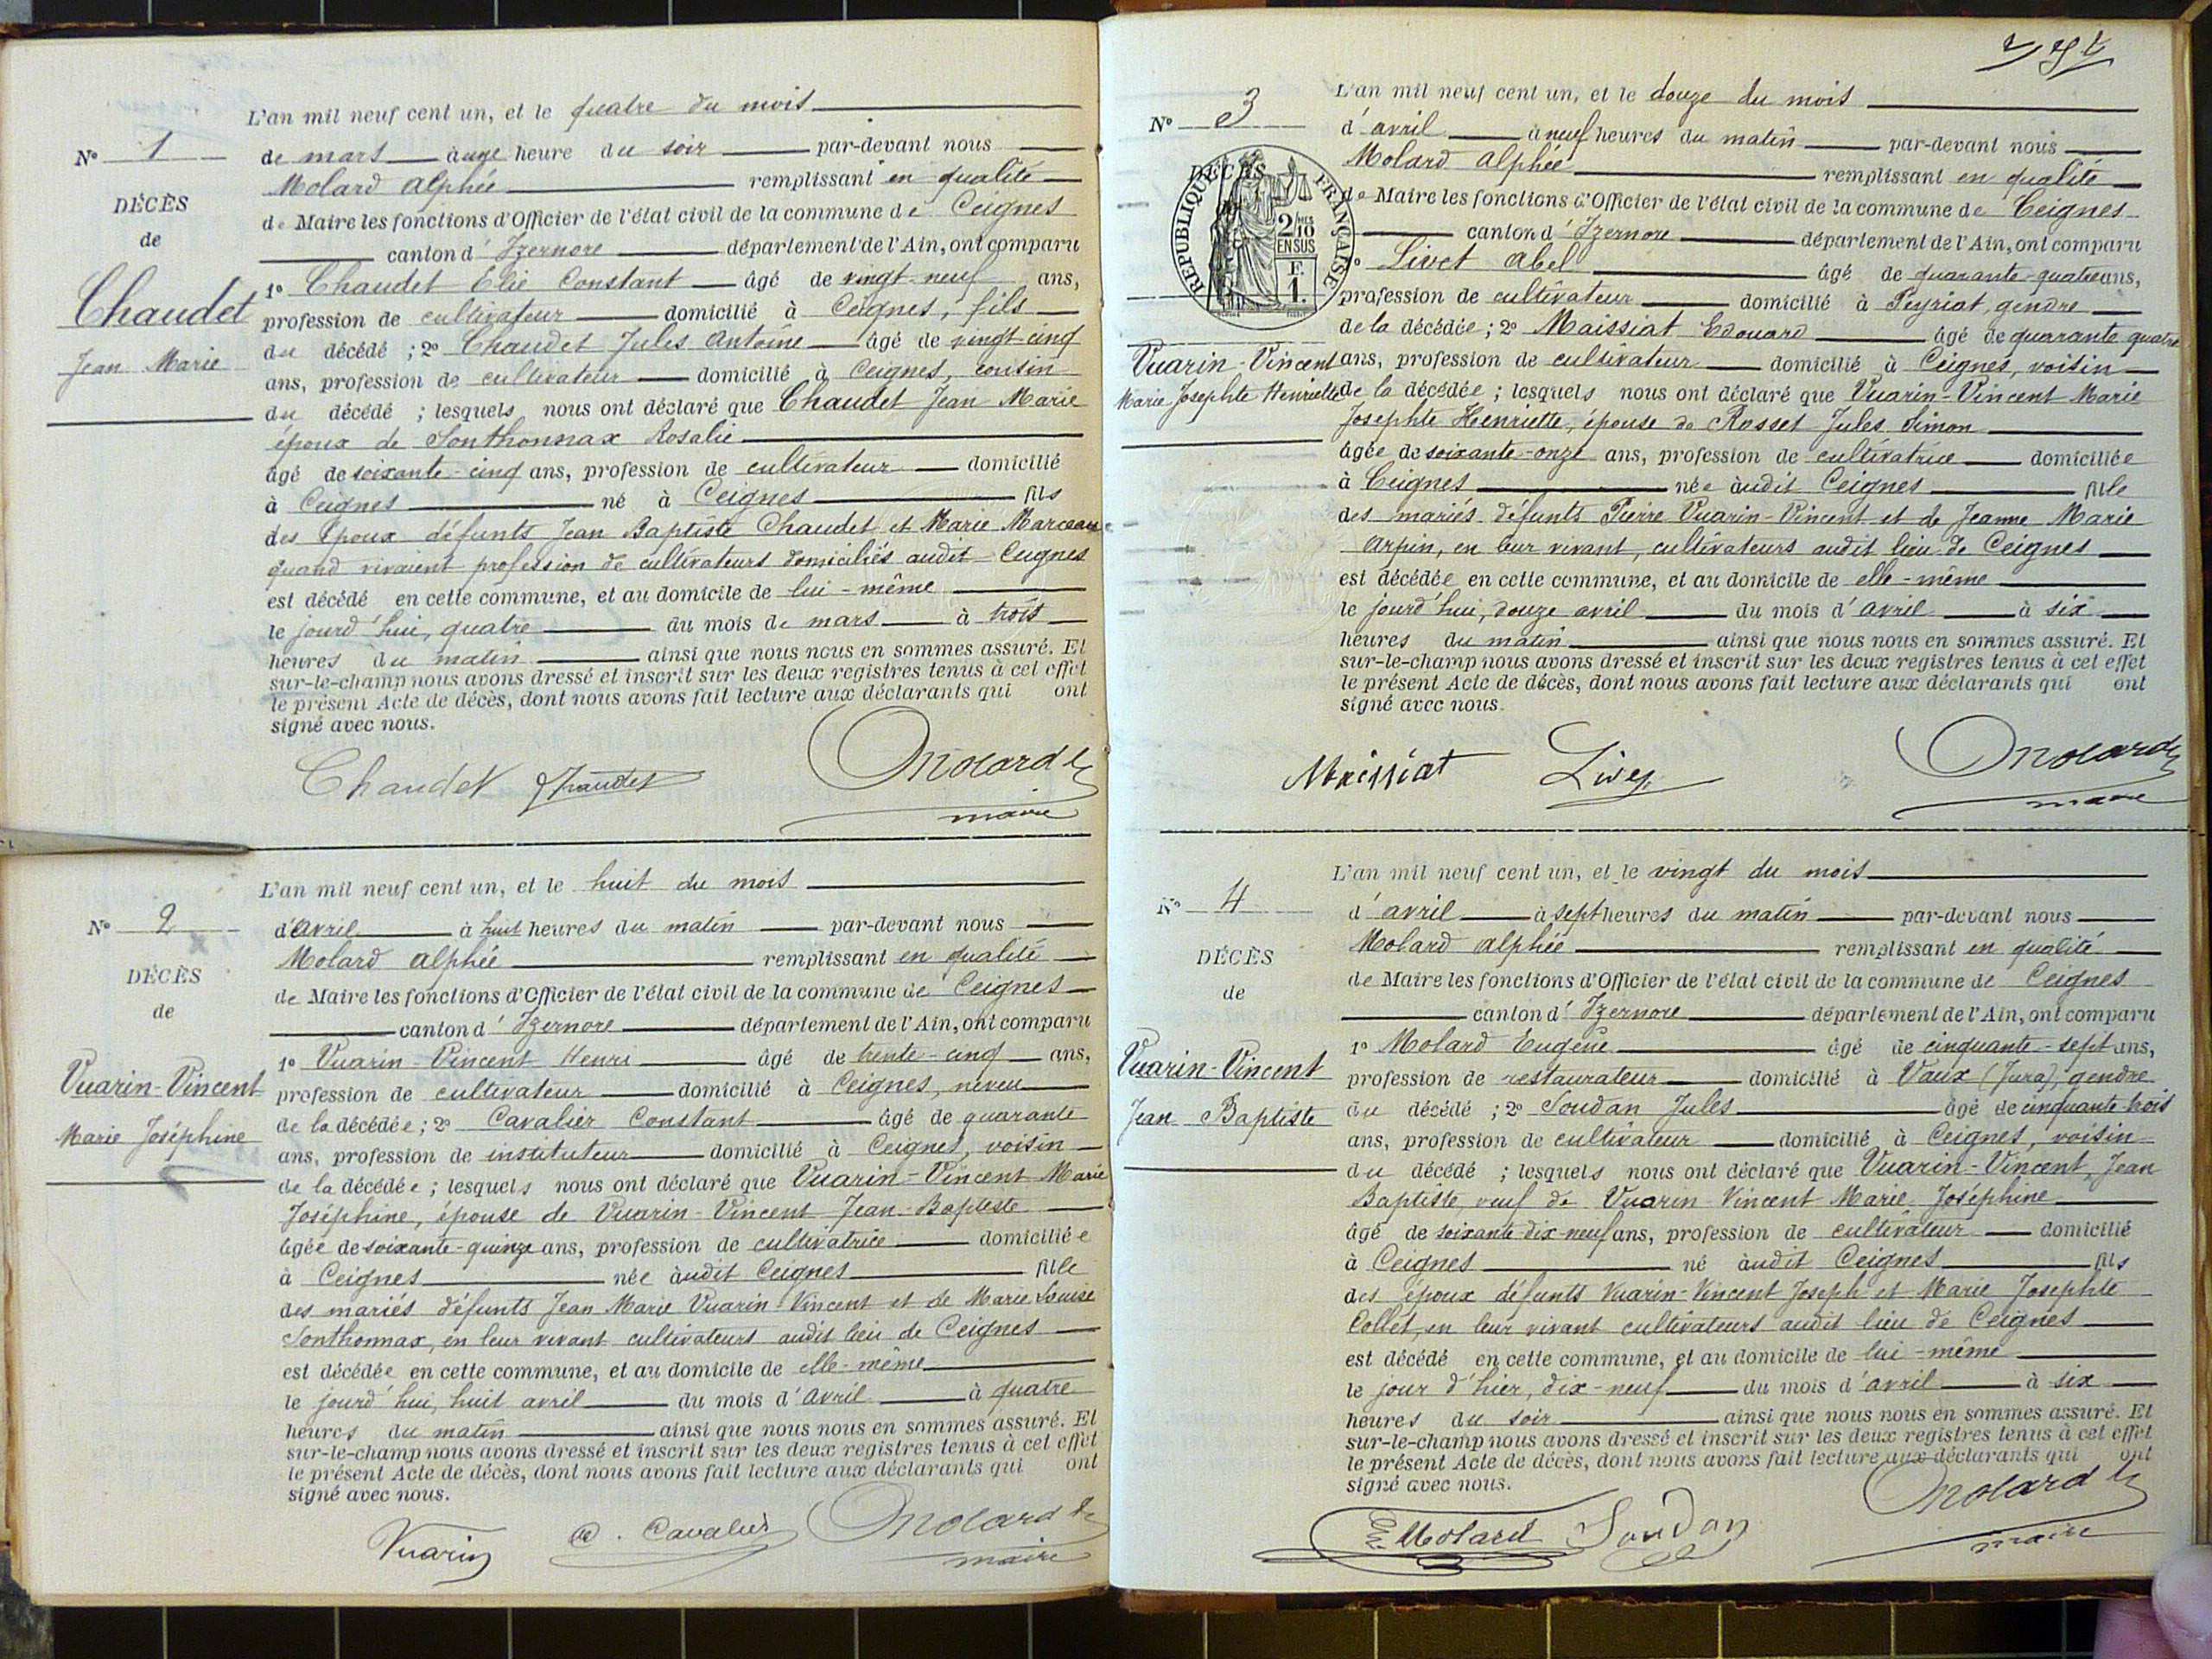 L'an mil neuf cent un, et le quatre du mois
N° 1
de mars à une heure du soir par-devant nous
Molard Alphée remplissant en qualité
DÉCÈS
de Maire les fonctions d'Officier de l'état civil de la commune de Ceignes
de
canton d'Izernore département de l'Ain, ont comparu
Chaudet
1° Chaudet Elie Constant âgé de vingt-neuf ans,
profession de cultivateur domicilié à Ceignes, fils
Jean Marie
du décédé ; 2° Chaudet Jules Antoine âgé de vingt-cinq
ans, profession de cultivateur domicilié à Ceignes, cousin
du décédé ; lesquels nous ont déclaré que Chaudet Jean Marie
époux de Sonthonnax Rosalie
âgé de soixante-cinq ans, profession de cultivateur domicilié
à Ceignes né à Ceignes fils
des époux défunts Jean Baptiste Chaudet et Marie Marceau
quand vivaient profession de cultivateurs domiciliés audit Ceignes
est décédé en cette commune, et au domicile de lui-même
le jourd'hui, quatre du mois de mars à trois
heures du matin ainsi que nous nous en sommes assuré. Et
sur-le-champ nous avons dressé et inscrit sur les deux registres tenus à cet effet
le présent Acte de décès, dont nous avons fait lecture aux déclarants qui ont
signé avec nous.
Chaudet Chaudet Molard
maire
L'an mil neuf cent un, et le huit du mois
N° 2
d'avril à huit heures du matin par-devant nous
Molard Alphée remplissant en qualité
DÉCÈS
de Maire les fonctions d'Officier de l'état civil de la commune de Ceignes
de
canton d'Izernore département de l'Ain, ont comparu
1° Vuarin-Vincent Henri âgé de trente-cinq ans,
Vuarin-Vincent
profession de cultivateur domicilié à Ceignes, neveu
Marie Joséphine
de la décédée ; 2° Cavalier Constant âgé de quarante
ans, profession de instituteur domicilié à Ceignes, voisin
de la décédée ; lesquels nous ont déclaré que Vuarin-Vincent Marie
Joséphine, épouse de Vuarin-Vincent Jean-Baptiste
âgée de soixante-quinze ans, profession de cultivatrice domiciliée
à Ceignes née audit Ceignes fille
des mariés défunts Jean Marie Vuarin-Vincent et de Marie Louise
Sonthonnax, en leur vivant cultivateurs audit lieu de Ceignes
est décédée en cette commune, et au domicile de elle-même
le jourd'hui, huit avril du mois d'avril à quatre
heures du matin ainsi que nous nous en sommes assuré. Et
sur-le-champ nous avons dressé et inscrit sur les deux registres tenus à cet effet
le présent Acte de décès, dont nous avons fait lecture aux déclarants qui ont
signé avec nous.
Vuarin C. Cavalier Molard
maire
L'an mil neuf cent un, et le douze du mois
N° 3
d'avril à neuf heures du matin par-devant nous
Molard Alphée remplissant en qualité
DÉCÈS
RÉPUBLIQUE FRANÇAISE
2 MES 10 EN SUS
F. 1.
de Maire les fonctions d'Officier de l'état civil de la commune de Ceignes
canton d'Izernore département de l'Ain, ont comparu
1° Livet Abel âgé de quarante-quatre ans,
profession de cultivateur domicilié à Peyriat, gendre
de la décédée ; 2° Maissiat Edouard âgé de quarante quatre
Vuarin-Vincent
ans, profession de cultivateur domicilié à Ceignes, voisin
Marie Josephte Henriette
de la décédée ; lesquels nous ont déclaré que Vuarin-Vincent Marie
Josephte Henriette, épouse de Rosset Jules Simon
âgée de soixante-onze ans, profession de cultivatrice domiciliée
à Ceignes née audit Ceignes fille
des mariés défunts Pierre Vuarin-Vincent et de Jeanne Marie
Arpin, en leur vivant, cultivateurs audit lieu de Ceignes
est décédée en cette commune, et au domicile de elle-même
le jourd'hui, douze avril du mois d'avril à six
heures du matin ainsi que nous nous en sommes assuré. Et
sur-le-champ nous avons dressé et inscrit sur les deux registres tenus à cet effet
le présent Acte de décès, dont nous avons fait lecture aux déclarants qui ont
signé avec nous.
Maissiat Livet Molard
maire
L'an mil neuf cent un, et le vingt du mois
N° 4
d'avril à sept heures du matin par-devant nous
Molard Alphée remplissant en qualité
DÉCÈS
de Maire les fonctions d'Officier de l'état civil de la commune de Ceignes
de
canton d'Izernore département de l'Ain, ont comparu
1° Molard Eugène âgé de cinquante-sept ans,
Vuarin-Vincent
profession de restaurateur domicilié à Vaux (Jura), gendre
Jean Baptiste
du décédé ; 2° Soudan Jules âgé de cinquante trois
ans, profession de cultivateur domicilié à Ceignes, voisin
du décédé ; lesquels nous ont déclaré que Vuarin-Vincent, Jean
Baptiste, veuf de Vuarin-Vincent Marie Joséphine
âgé de soixante dix-neuf ans, profession de cultivateur domicilié
à Ceignes né audit Ceignes fils
des époux défunts Vuarin-Vincent Joseph et Marie Josephte
Collet, en leur vivant cultivateurs audit lieu de Ceignes
est décédé en cette commune, et au domicile de lui-même
le jour d'hier, dix-neuf du mois d'avril à six
heures du soir ainsi que nous nous en sommes assuré. Et
sur-le-champ nous avons dressé et inscrit sur les deux registres tenus à cet effet
le présent Acte de décès, dont nous avons fait lecture aux déclarants qui ont
signé avec nous.
Molard Soudan Molard
maire